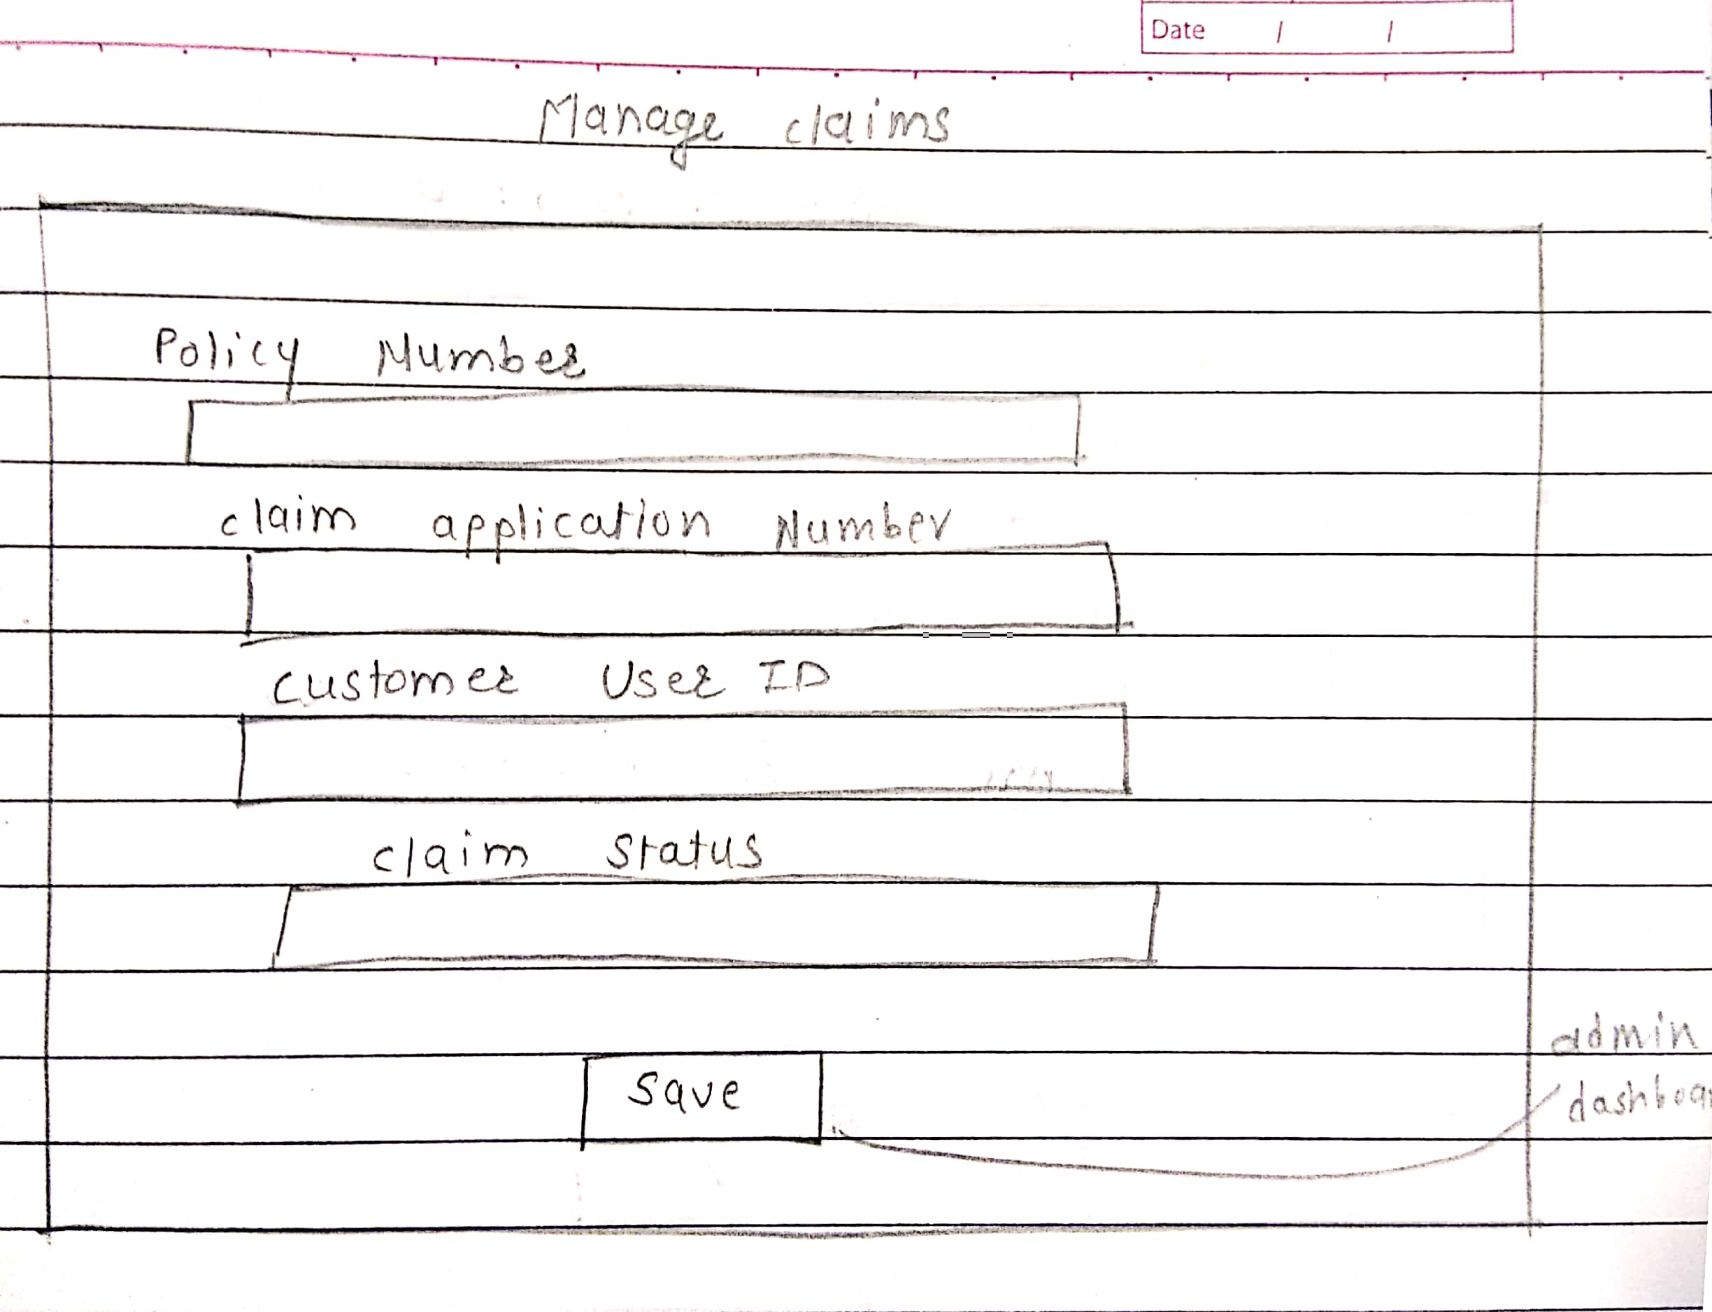 Date / /
Manage claims
Policy Number
claim application Number
customer User ID
claim status
save
admin